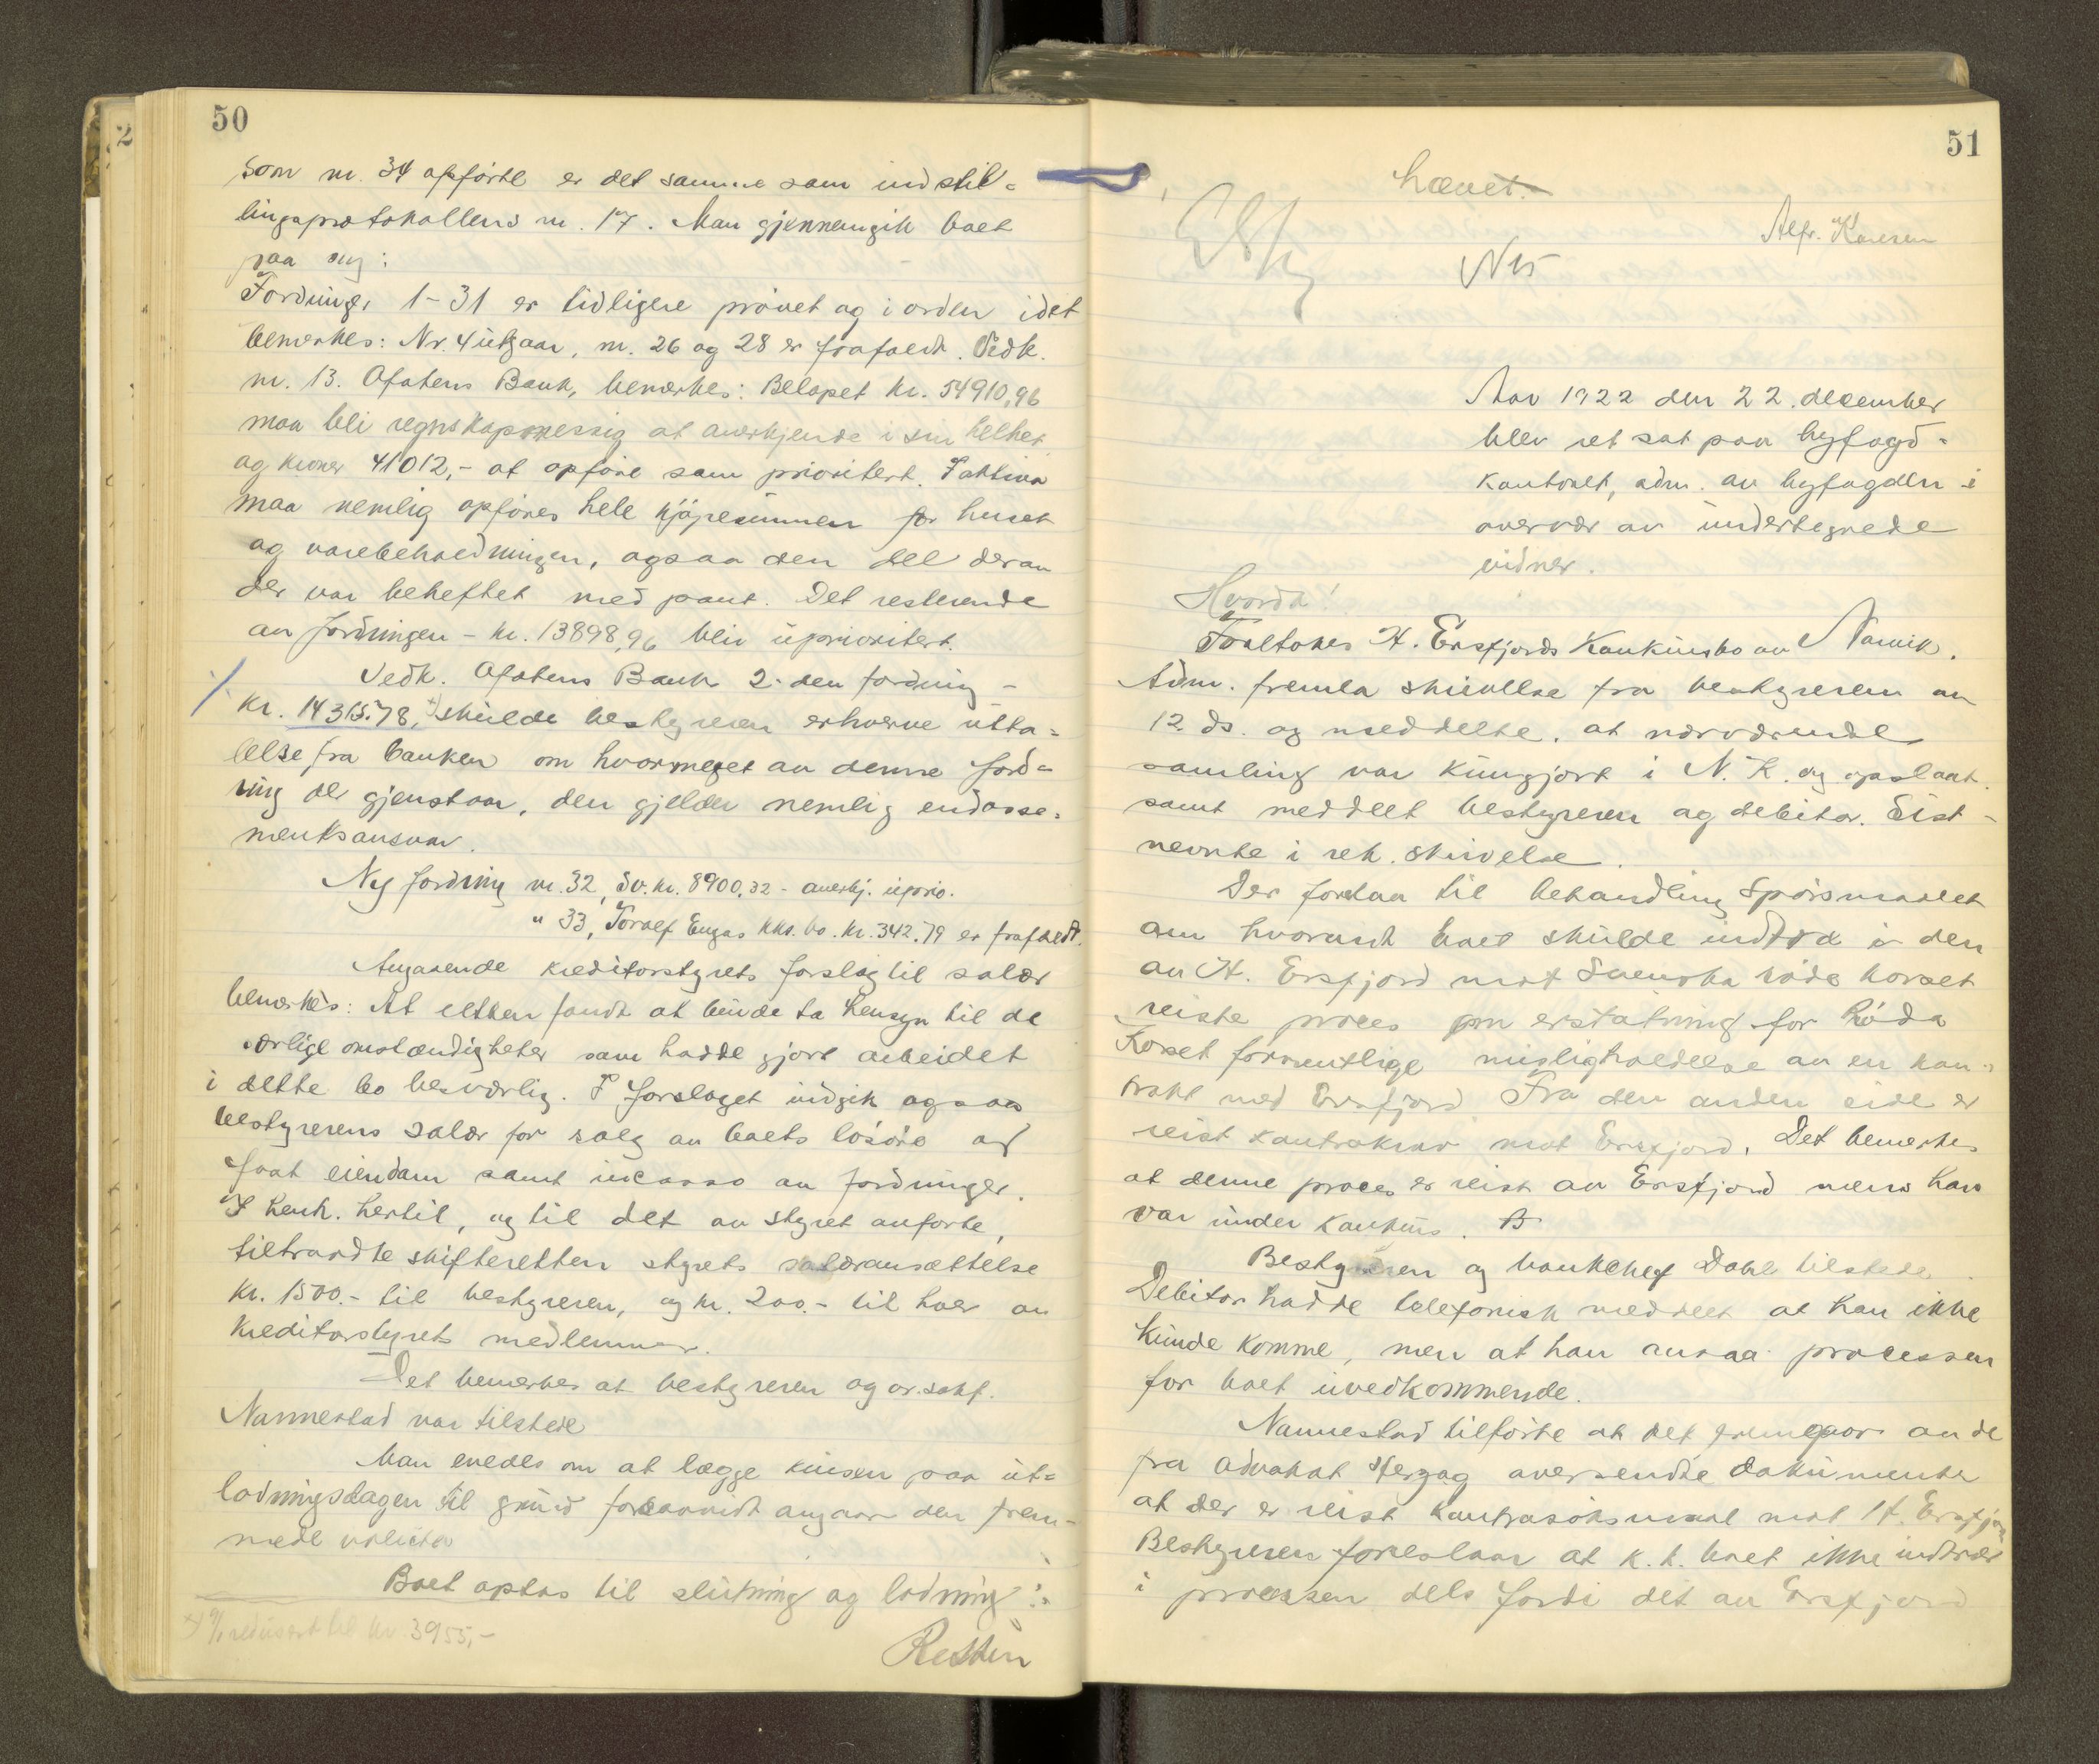 50
som nr. 34 opførte er det samme som indstil-
lingsprotokollens nr. 17. Man gjennemgik boet
paa ny:
Fordringer 1-31 er tidligere prøvet og i orden idet
bemerkes: Nr. 4 utgaar, nr. 26 og 28 er frafaldt. Vedk.
nr. 13. Ofotens Bank, bemerkes: Beløpet kr. 54910,96
maa bli regnskapsmessig at anerkjende i sin helhet
og kroner 41012,- at opføre som prioritert. I aktiva
maa nemlig opføres hele kjøpesummen for huset
og varebeholdningen, ogsaa den del derav
der var beheftet med pant. Det resterende
av fordringen - kr. 13898,96 blir uprioritert.
Vedk. Ofotens Bank 2. den fordring -
kr. 14315.78, x) skulde bestyreren erhverve utta-
lelse fra banken om hvormeget av denne ford-
ring der gjenstaar, den gjelder nemlig endosse-
mentsansvar.
Ny fordring nr. 32, Sv. kr. 8900.32 - anerkj. uprio.
" 33, Toralf Engas kks. bo. kr. 342.79 er frafaldt.
Angaaende kreditorstyrets forslag til salær
bemerkes: At retten fandt at burde ta hensyn til de
særlige omstændigheter som hadde gjort arbeidet
i dette bo besværlig. I forslaget indgik ogsaa
bestyrerens salær for salg av boets løsøre og
fast eiendom samt incasso av fordringer.
I henh. hertil, og til det av styret anførte,
tiltraadte skifteretten styrets salæransættelse
kr. 1500.- til bestyreren, og kr. 200.- til hver av
kreditorstyrets medlemmer.
Det bemerkes at bestyreren og or.sakf.
Nannestad var tilstede
Man enedes om at lægge kursen paa ut-
lodningsdagen til grund forsaavidt angaar den frem-
mede valuta
Boet optas til slutning og lodning.
x) 9/1 redusert til kr. 3955,-
51
hævet.
Alfr. Karlsen
Aar 1922 den 22. december
blev ret sat paa byfogd-
kontoret, adm. av byfogden i
overvær av undertegnede
vidner.
Hvorda!
Foretokes H. Ersfjords konkursbo av Narvik.
Adm. fremla skrivelse fra bestyreren av
12. ds. og meddelte, at nærværende
samling var kungjort i N. K. og opslaat.
samt meddelt bestyreren og debitor. Sist-
nevnte i rek. skrivelse.
Der forelaa til behandling spørsmaalet
om hvorvidt boet skulde indtræ i den
av H. Ersfjord mot Svenska röda korset
reiste proces om erstatning for Röda
Korset formentlige misligholdelse av en kon-
trakt med Ersfjord. Fra den anden side er
reist kontrakrav mot Ersfjord. Det bemerkes
at denne proces er reist av Ersfjord mens han
var under konkurs.
Bestyreren og bankchef Dahl tilstede.
Debitor hadde telefonisk meddelt at han ikke
kunde komme, men at han ansaa processen
for boet uvedkommende.
Nannestad tilførte at det fremgaar av de
fra advokat Herzog oversendte dokumenter
at der er reist kontrasøksmaal mot H. Ersfjord
Bestyreren foreslaar at k. k. boet ikke indtrær
i processen dels fordi det av Ersfjord